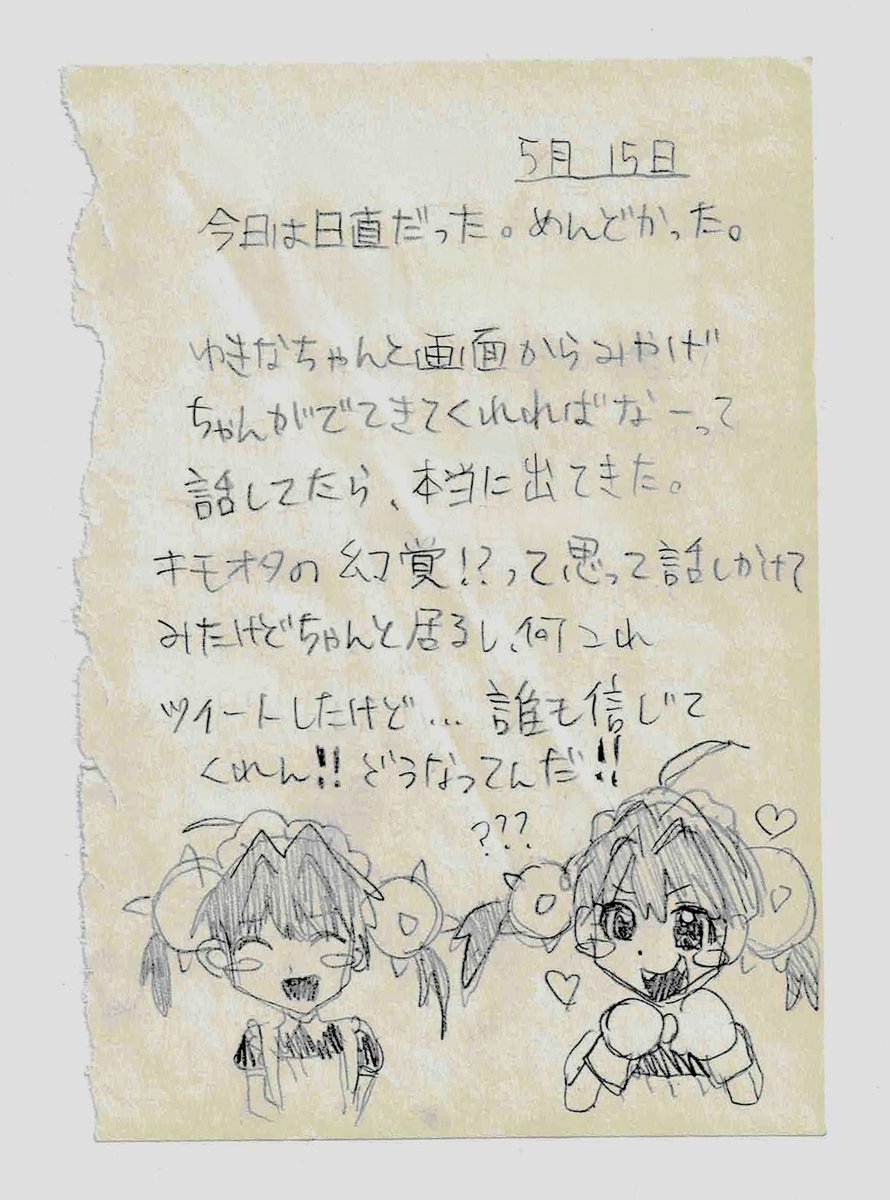 5月 15日
今日は日直だった。めんどかった。
ゆきなちゃんと画面からみやげ
ちゃんがでてきてくれればなーって
話してたら、本当に出てきた。
キモオタの幻覚!?って思って話しかけて
みたけどちゃんと居るし、何コれ
ツイートしたけど…誰も信じて
くれん!!どうなってんだ!!
???